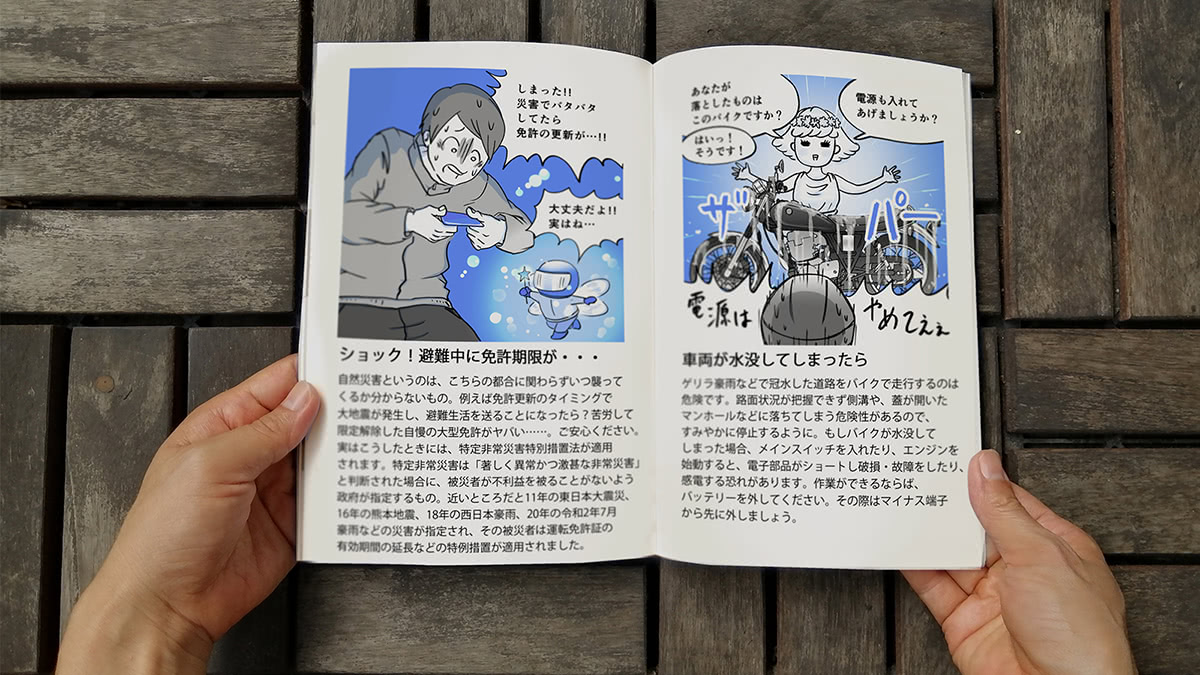 しまった!!
災害でバタバタ
してたら
免許の更新が…!!
大丈夫だよ!!
実はね…
ショック！避難中に免許期限が・・・
自然災害というのは、こちらの都合に関わらずいつ襲って
くるか分からないもの。例えば免許更新のタイミングで
大地震が発生し、避難生活を送ることになったら？苦労して
限定解除した自慢の大型免許がヤバい……。ご安心ください。
実はこうしたときには、特定非常災害特別措置法が適用
されます。特定非常災害は「著しく異常かつ激甚な非常災害」
と判断された場合に、被災者が不利益を被ることがないよう
政府が指定するもの。近いところだと11年の東日本大震災、
16年の熊本地震、18年の西日本豪雨、20年の令和2年7月
豪雨などの災害が指定され、その被災者は運転免許証の
有効期間の延長などの特例措置が適用されました。
あなたが
落としたものは
このバイクですか？
はいっ！
そうです！
電源も入れて
あげましょうか？
ザパー
電源は
やめてえぇ
車両が水没してしまったら
ゲリラ豪雨などで冠水した道路をバイクで走行するのは
危険です。路面状況が把握できず側溝や、蓋が開いた
マンホールなどに落ちてしまう危険性があるので、
すみやかに停止するように。もしバイクが水没して
しまった場合、メインスイッチを入れたり、エンジンを
始動すると、電子部品がショートし破損・故障をしたり、
感電する恐れがあります。作業ができるならば、
バッテリーを外してください。その際はマイナス端子
から先に外しましょう。